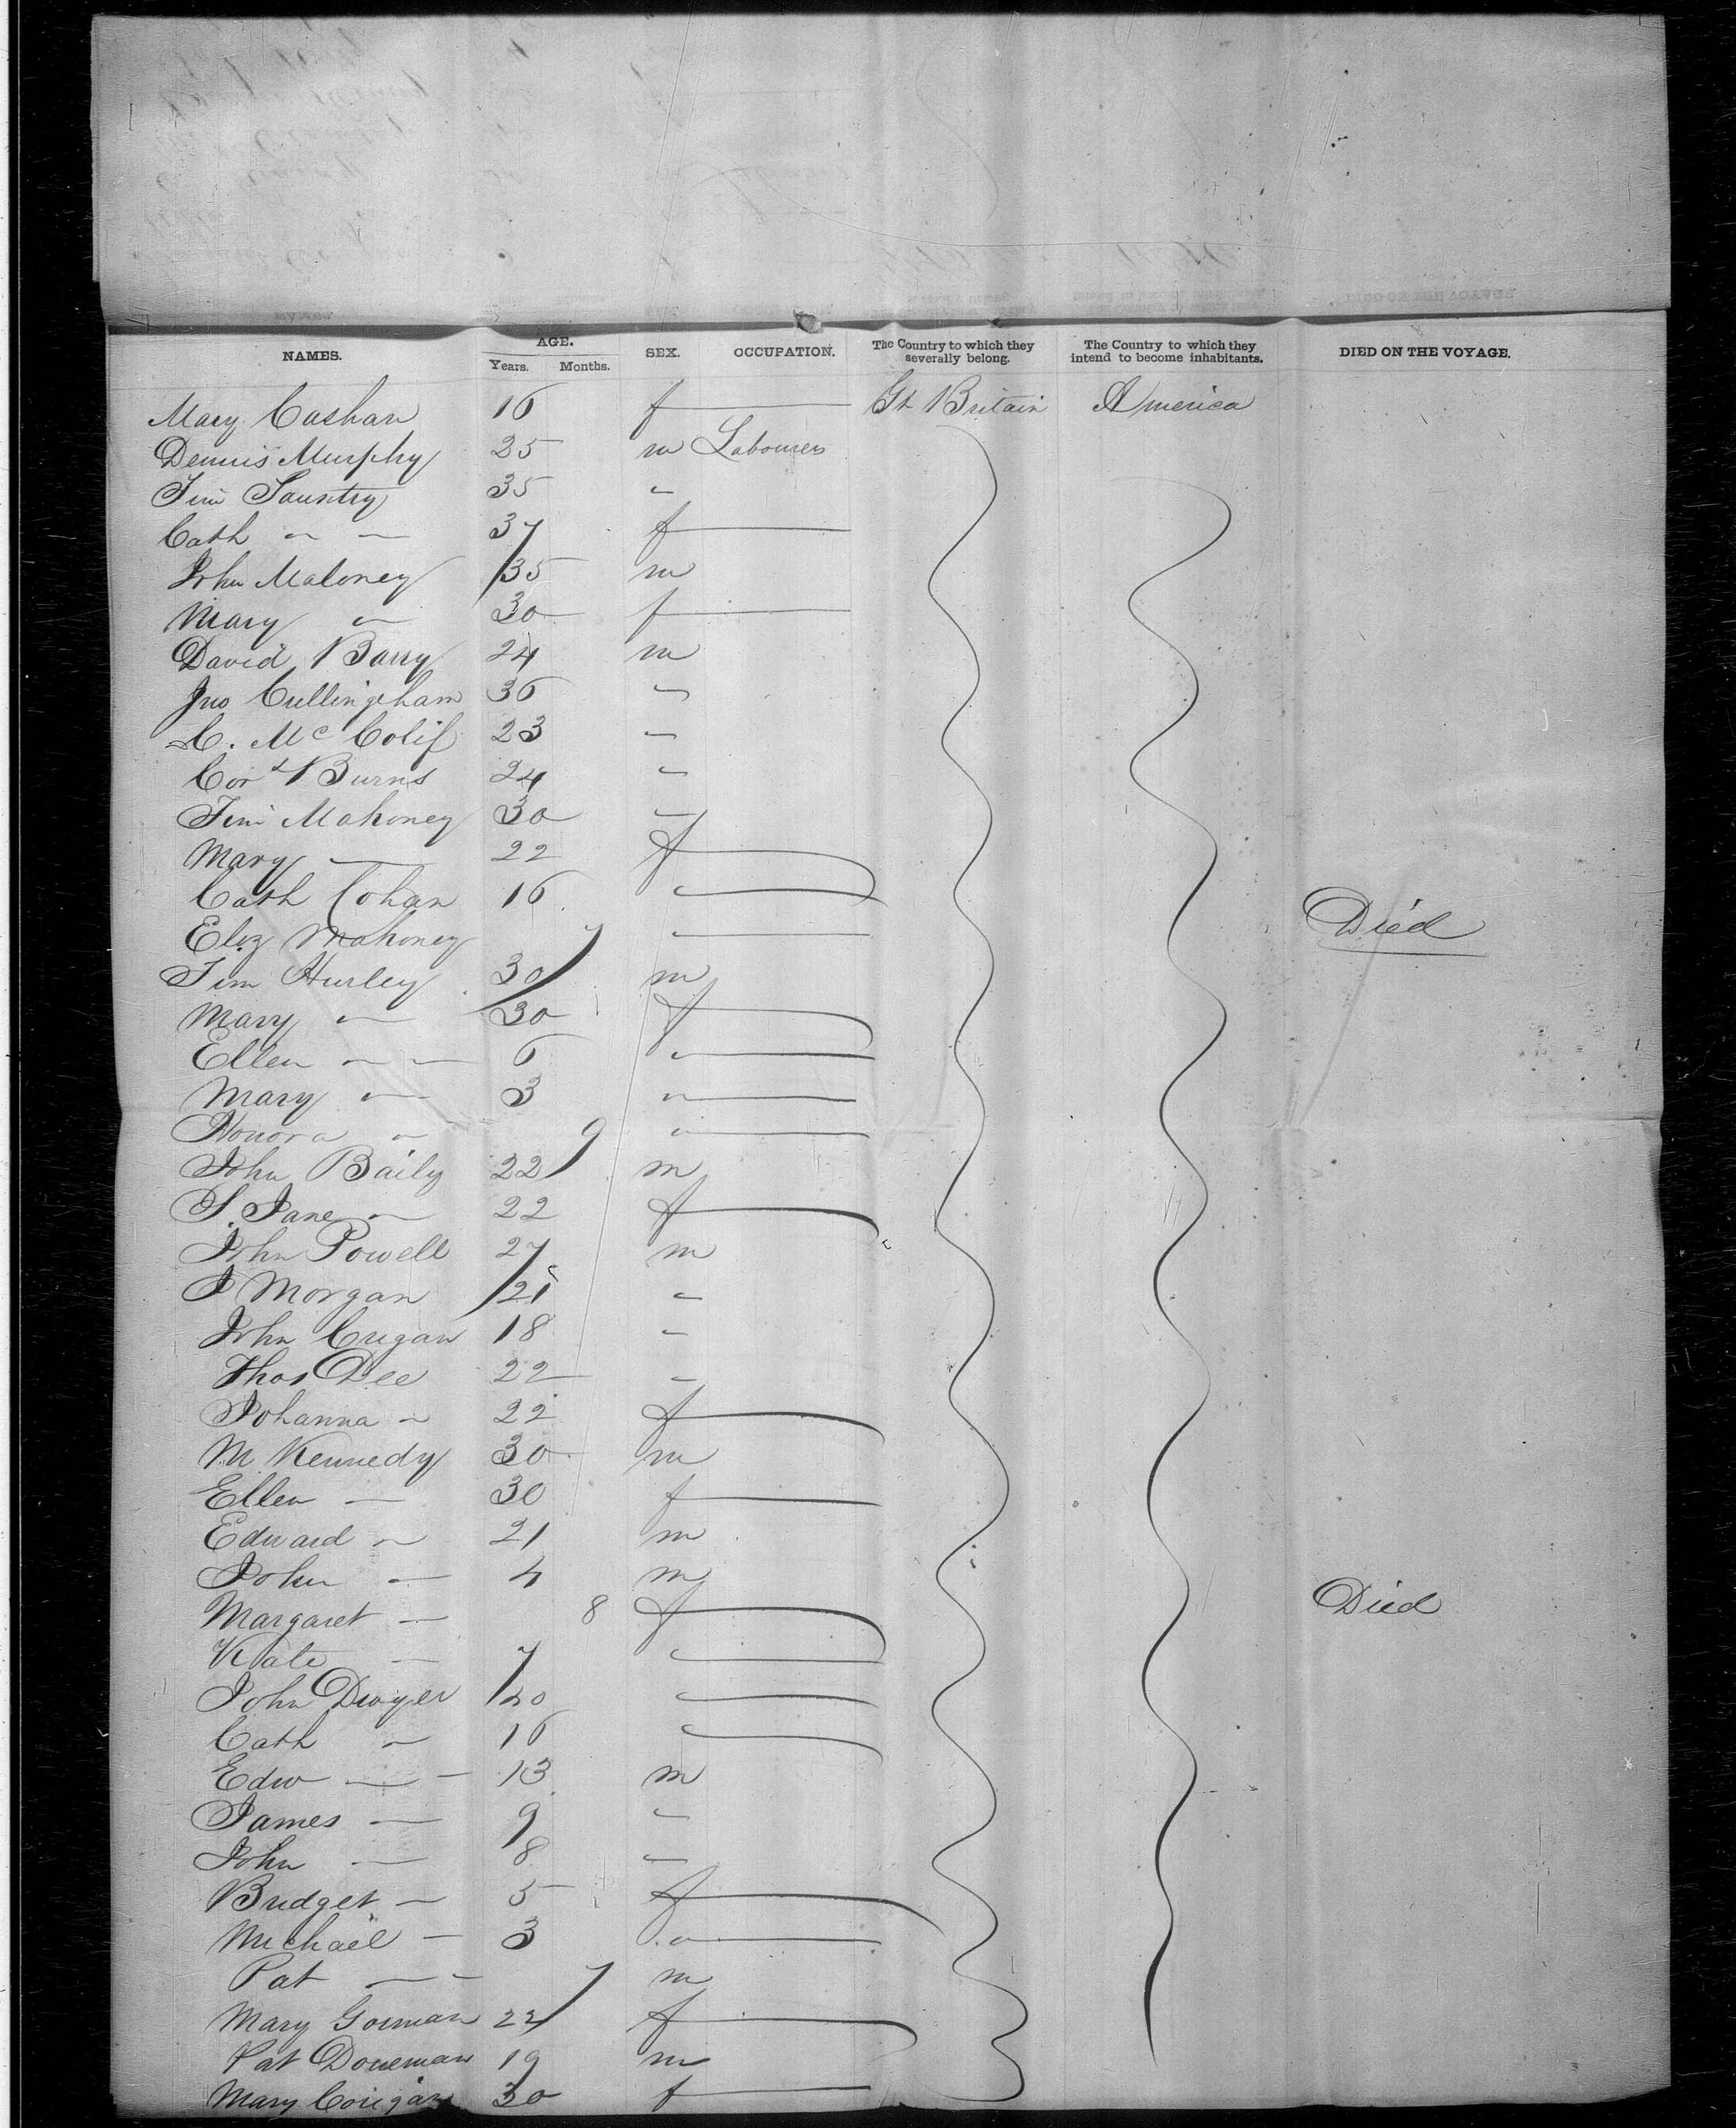 NAMES. AGE. Years. Months. SEX. OCCUPATION. The Country to which they severally belong. The Country to which they intend to become inhabitants. DIED ON THE VOYAGE.
Mary Cashan 16 f Gt Britain America
Dennis Murphy 25 m Labourers
Tim Sauntry 35 "
Cath " " 37 f
John Maloney 35 m
Mary " 30 f
David Barry 24 m
Jno Cullingham 36 "
C. Mc Colif 23 "
Cors Burns 24 "
Tim Mahoney 30 "
Mary — 22 f
Cath Cohan 16 "
Eliz Mahoney 7 " Died
Tim Hurley 30 m
Mary " 30 f
Ellen " 6 "
Mary " 3 "
Honora " 9 "
John Baily 22 m
S. Jane " 22 f
John Powell 27 m
J Morgan 21 "
John Crigan 18 "
Thos Dee 22 "
Johanna " 22 f
M Kennedy 30 m
Ellen — 30 f
Edward " 21 m
John — 4 m
Margaret — 8 f Died
Kate — 7 "
John Dwyer 20 "
Cath " 16 "
Edw — 13 m
James — 9 "
John — 8 "
Bridget — 5 f
Michael — 3 "
Pat — 7 m
Mary Gorman 22 f
Pat Doneman 19 m
Mary Corigan 30 f